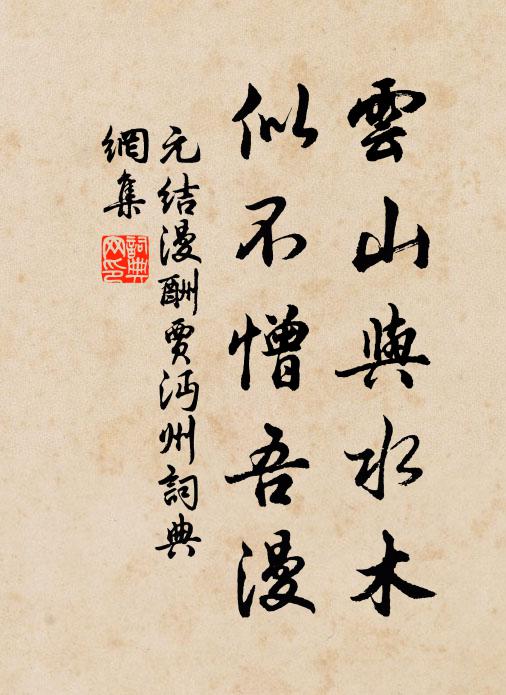 雲山與水木
似不憎吾漫
元結漫酬賈沔州詞典
網集
詞典
网印